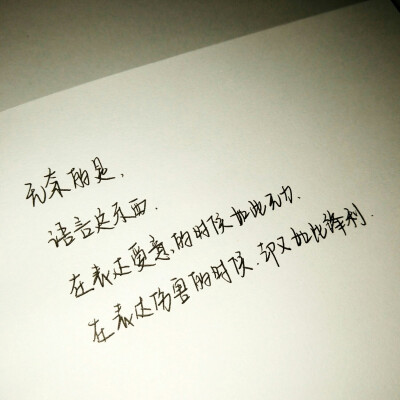 无奈的是,
语言这东西.
在表达爱意,的时候如此无力.
在表达伤害的时候.却又如此锋利.